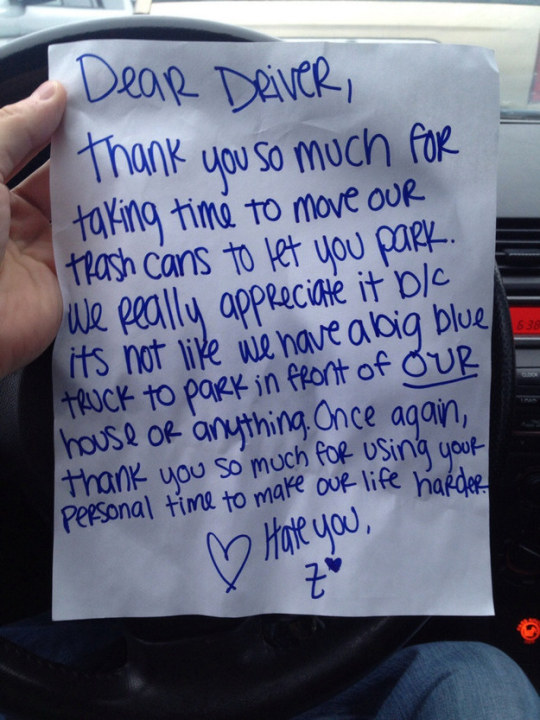 Dear Driver,
Thank you so much for
taking time to move our
trash cans to let you park.
We really appreciate it b/c
its not like we have a big blue
truck to park in front of OUR
house or anything. Once again,
thank you so much for using your
personal time to make our life harder.
♡ Hate you,
Z ♥